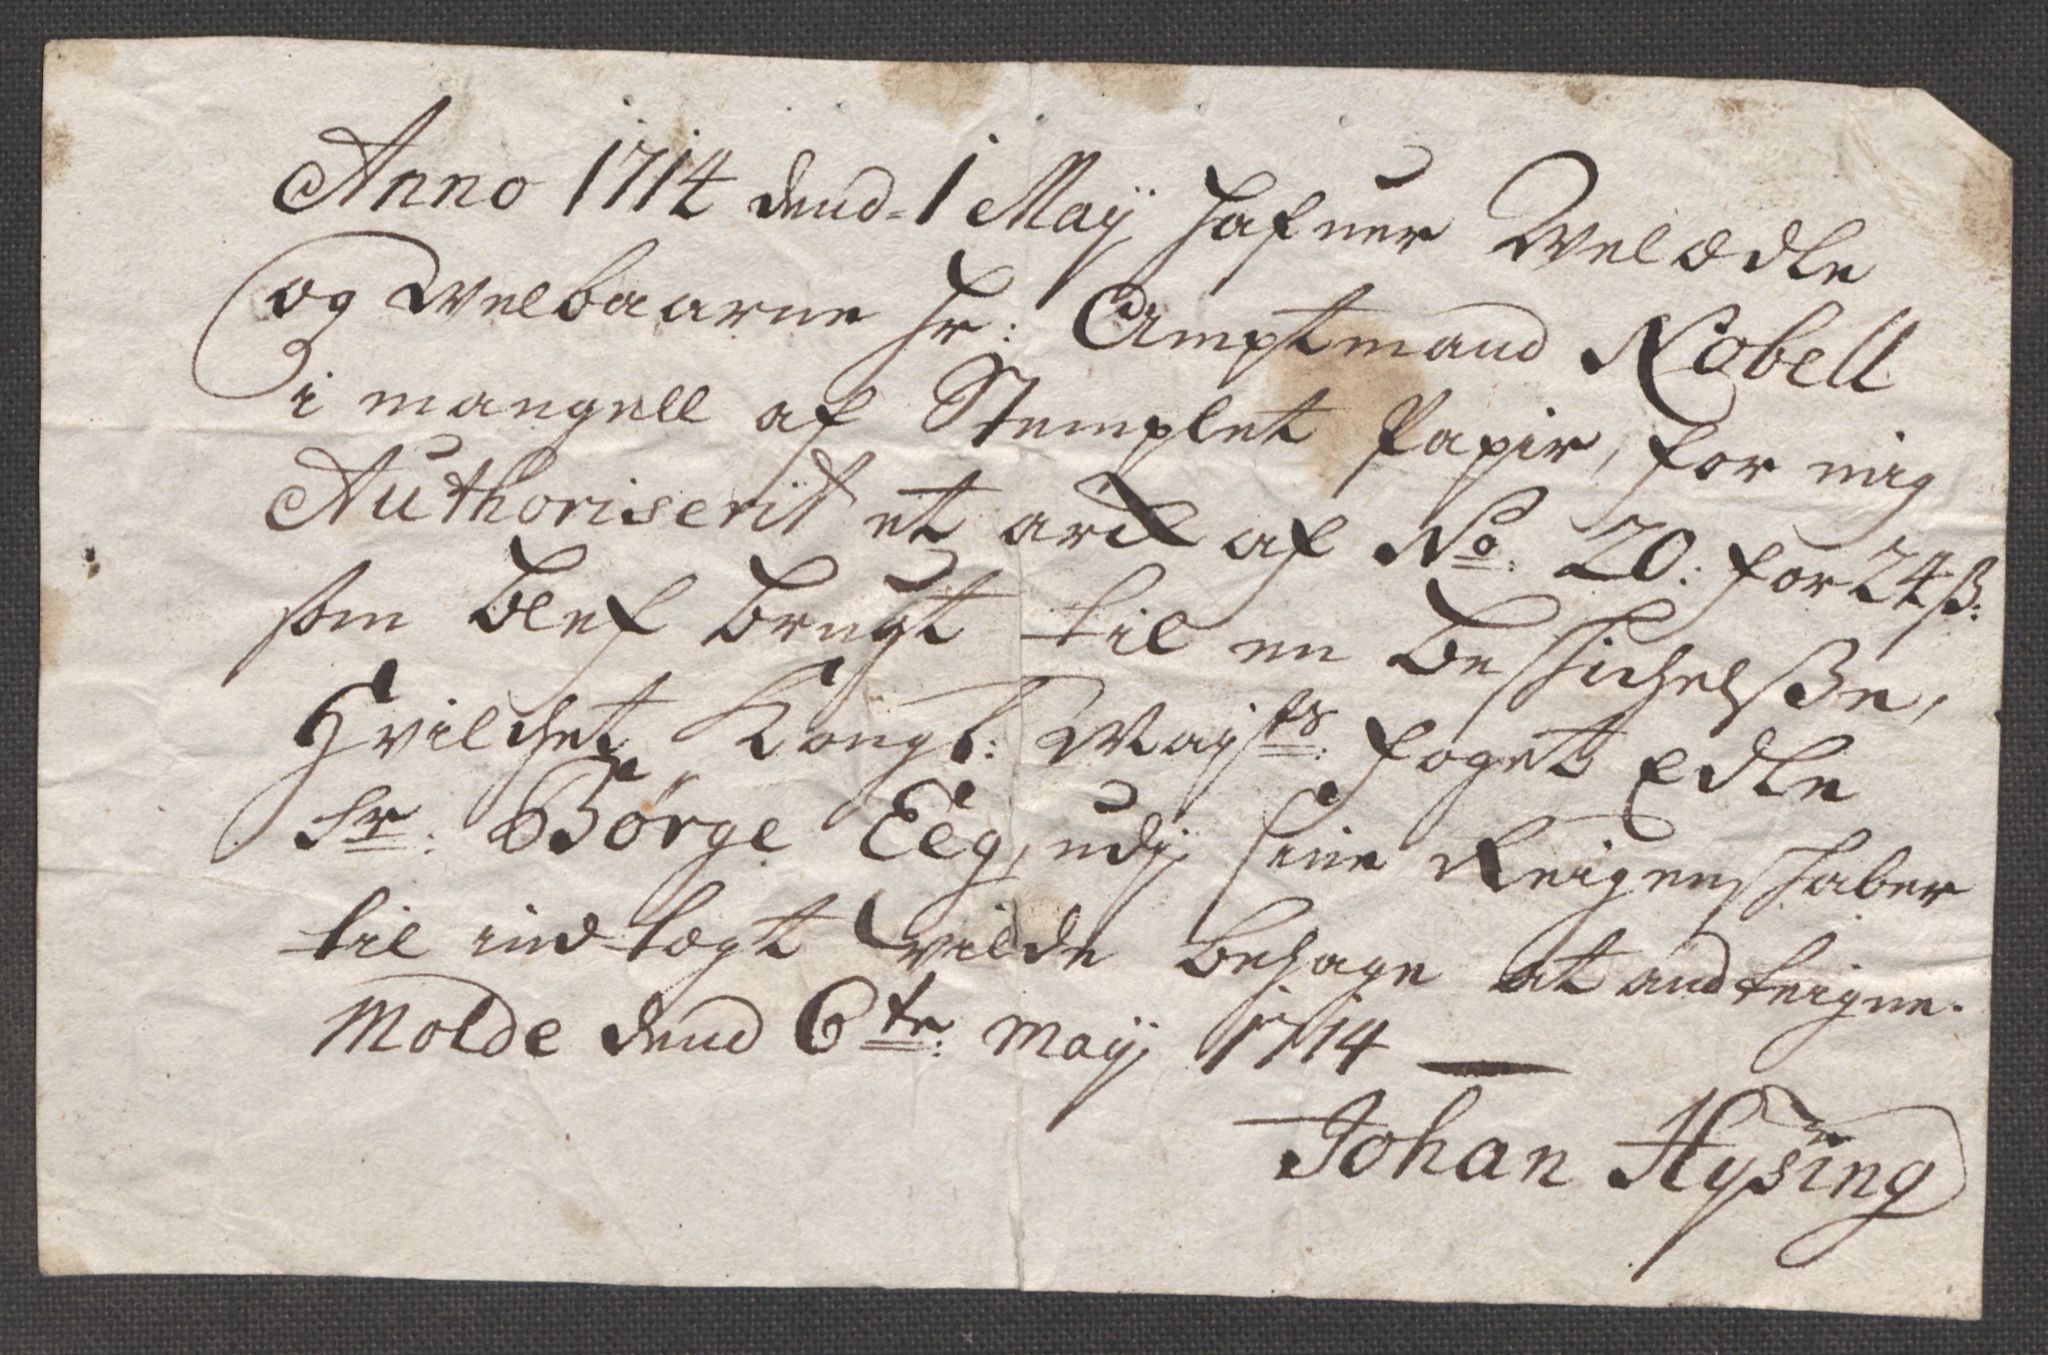 Anno 1714 dend 1 Maÿ hafuer Welædle
og Welbaarne Hr: Amptmand Nobell
i mangell af Stemplet Papir, for mig
Authoriserit et arck af No: 20: for 24 ß:
som blef brugt til en beschichelße,
Hvilchet Kongl: Mayts: foget Edle
Sr: Børge Eeg, udj sine Reigenschaber
til indtægt vilde behage at andteigne.
Molde dend 6te: Maÿ 1714
Johan Hysing